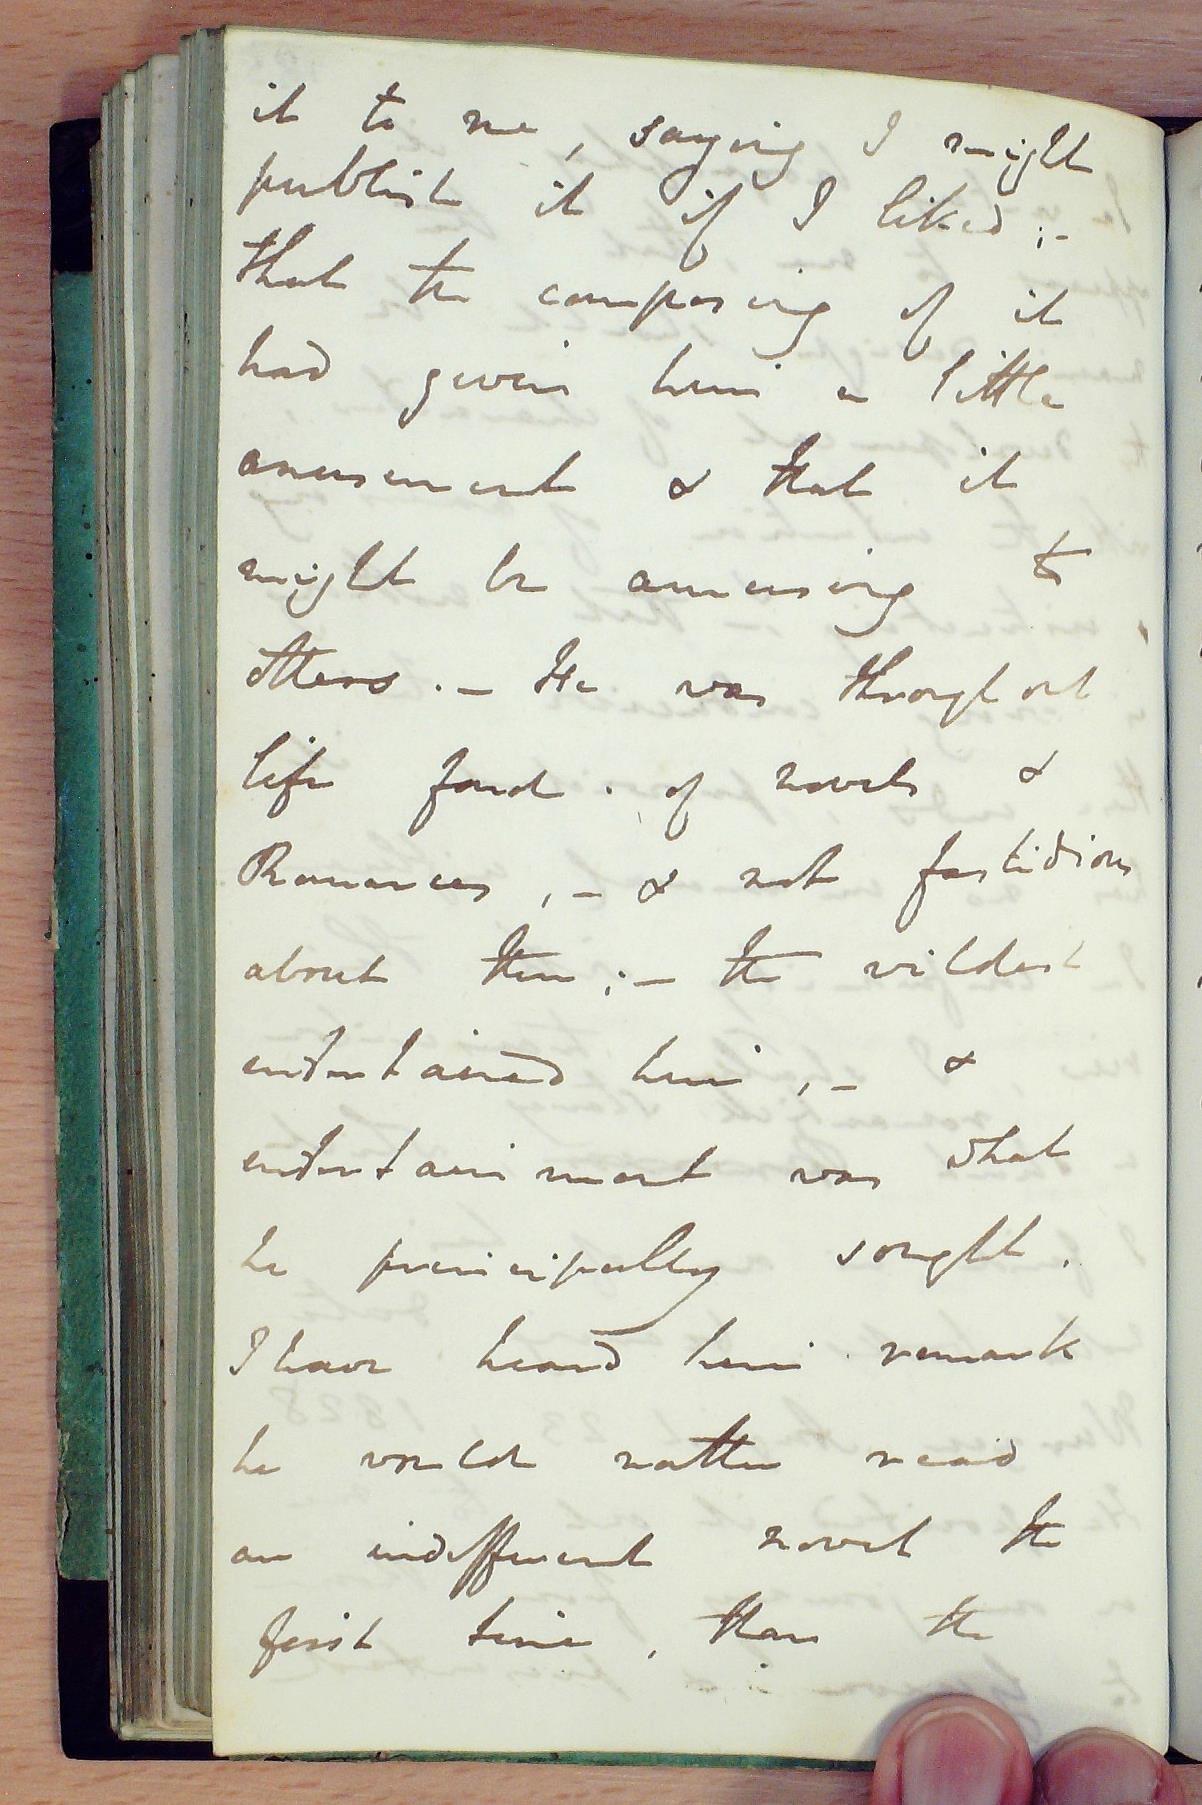 it to me, saying I might
publish it if I liked;-
that the composing of it
had given him a little
amusement & that it
might be amusing to
others.- He was throughout
life fond of novels &
Romances,- & not fastidious
about them;- the wildest
entertained him,- &
entertainment was what
he principally sought.
I have heard him remark
he would rather read
an indifferent novel the
first time, than the